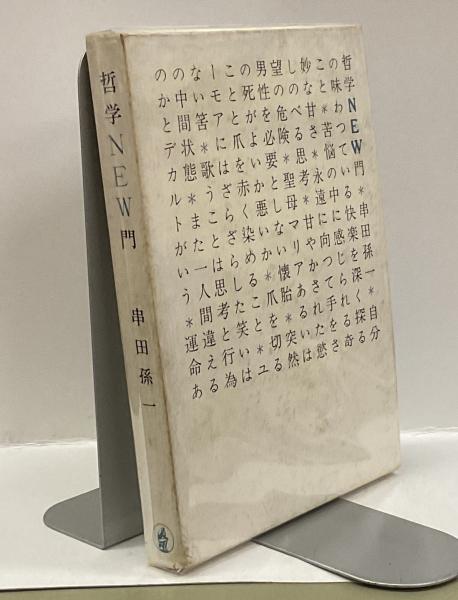 哲学NEW門
串田孫一
哲学NEW門*串田孫一*自分
の味わつている快楽を深く探る
こと*苦悩の中に感じられる奇
妙な甘さ*永遠に向つて手をさ
しのべる思考*甘やかされた慾
望の危険*聖母マリアあるいは
男性を必要としない懐胎*突然
の死がよいか悪いか*爪を切る
ことと爪を赤く染めること*ユ
ーモアにはざらざらした笑いは
ない筈*歌うことは思考と行為
の中間状態*また一人間違える
のかとデカルトがいう*運命あ